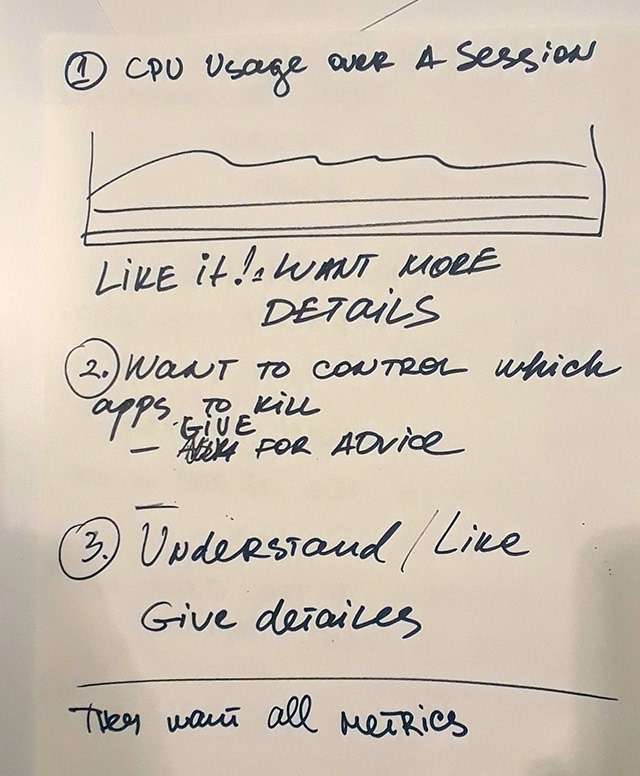 ① CPU Usage over A Session
LIKE it! WANT MORE
DETAILS
2. WANT TO CONTROL which
apps TO KILL
GIVE
— FOR ADVICE
3. Understand / Like
Give detailes
They want all metrics